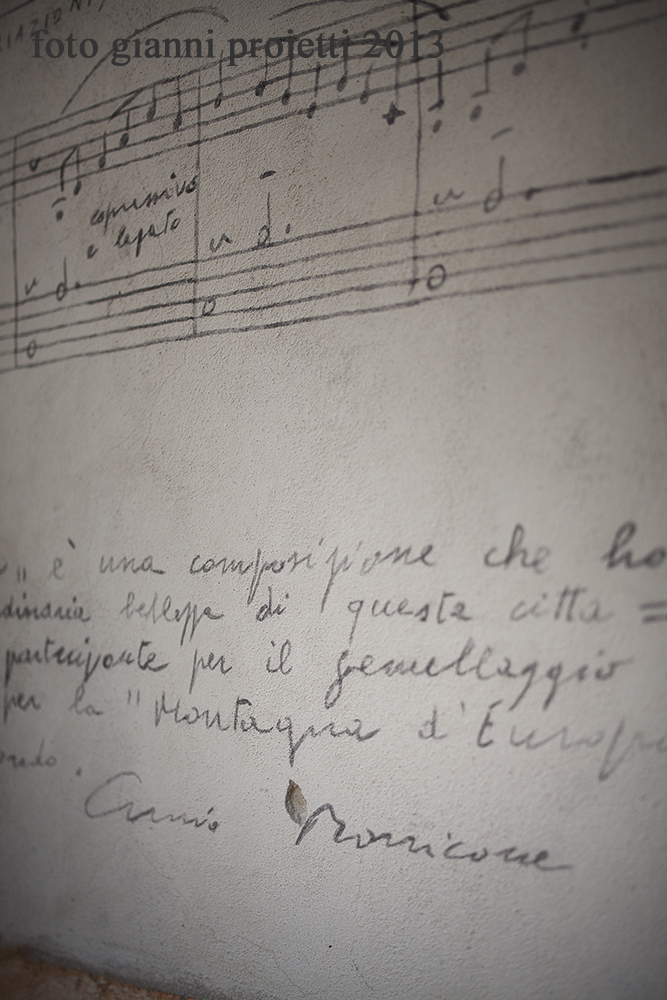 foto gianni proietti 2013
espressivo
e legato
" è una composizione che ho
dinaria bellezza di questa città =
partecipante per il gemellaggio
per la "Montagna d'Europa
Ennio Morricone